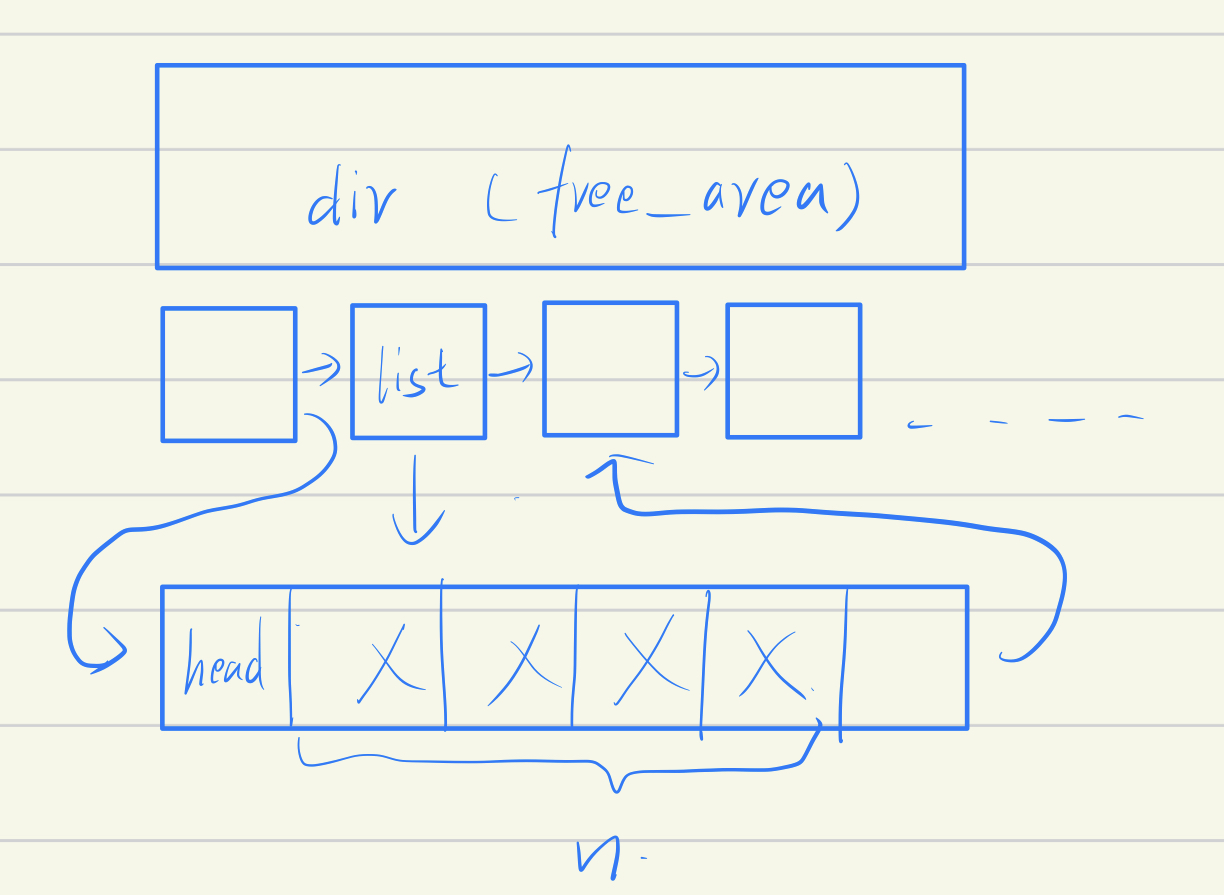 dir (free_area)
list
head X X X X
n.